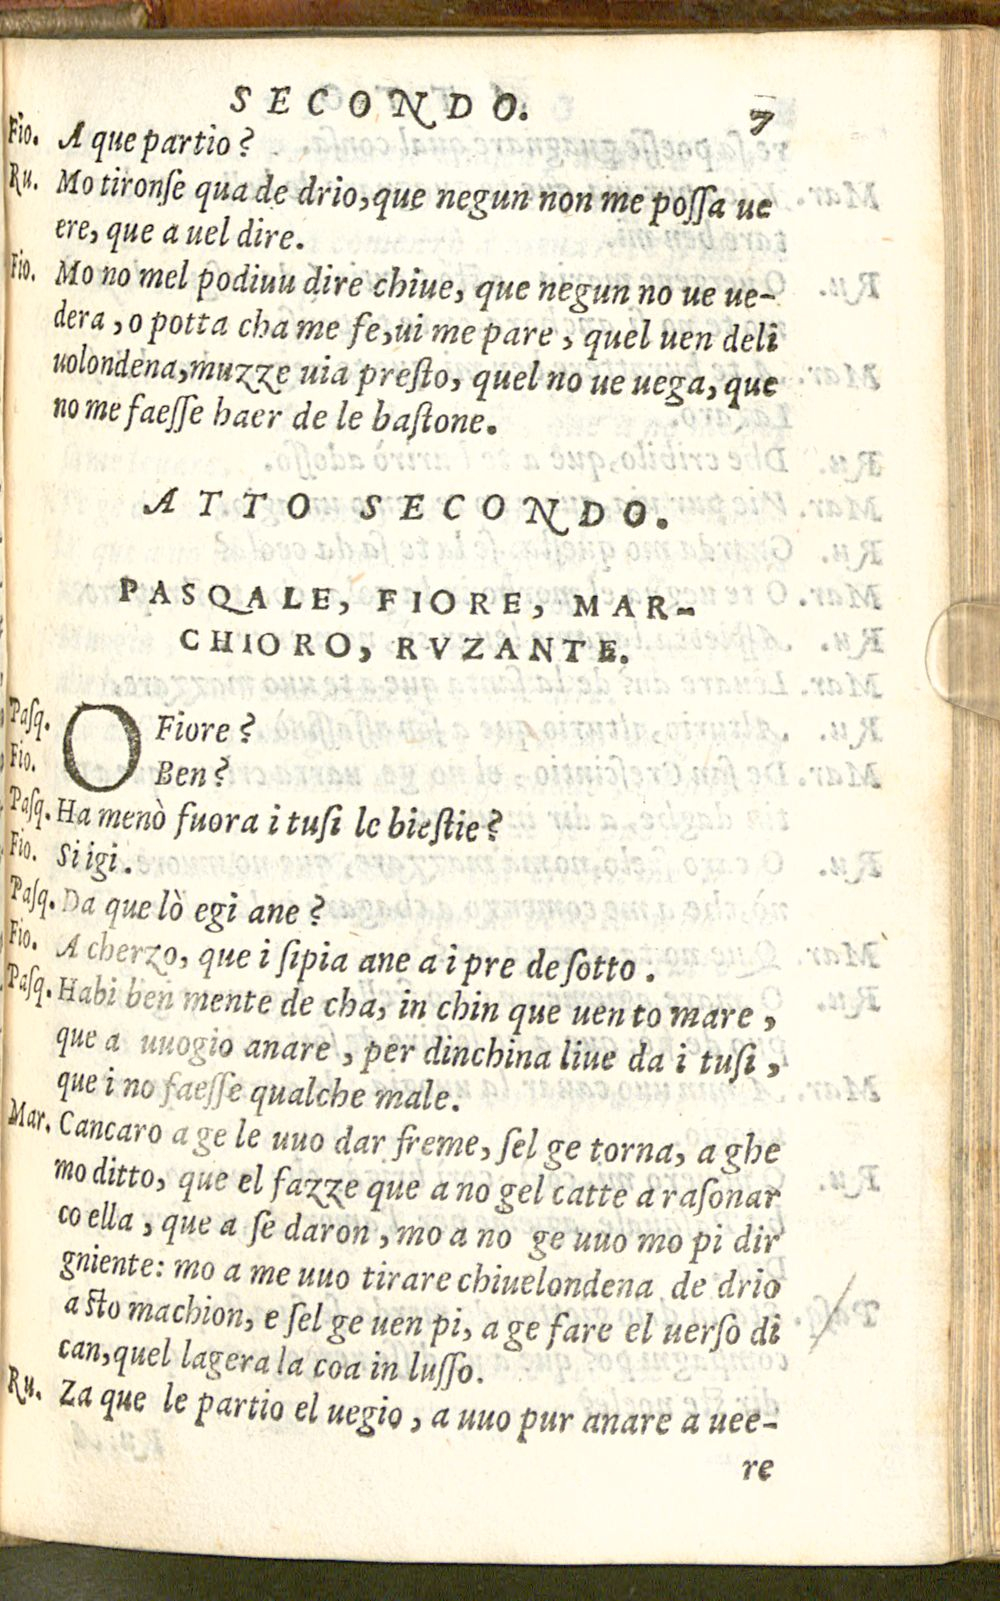 SECONDO. 7
Fio. A que partio?
Ru. Mo tironſe qua de drio, que negun non me poſſa ue
ere, que a uel dire.
Fio. Mo no mel podiuu dire chiue, que negun no ue ue-
dera, o potta cha me fe, ui me pare, quel uen deli
uolondena, muzze uia preſto, quel no ue uega, que
no me faeſſe haer de le baſtone.
ATTO SECONDO.
PASQALE, FIORE, MAR-
CHIORO, RVZANTE.
Paſq. O Fiore?
Fio. Ben?
Paſq. Ha menò fuora i tuſi le bieſtie?
Fio. Si igi.
Paſq. Da que lò egi ane?
Fio. A cherzo, que i ſipia ane a i pre de ſotto.
Paſq. Habi ben mente de cha, in chin que uen to mare,
que a uuogio anare, per dinchina liue da i tuſi,
que i no faeſſe qualche male.
Mar. Cancaro a ge le uuo dar freme, ſel ge torna, a ghe
mo ditto, que el fazze que a no gel catte a raſonar
co ella, que a ſe daron, mo a no ge uuo mo pi dir
gniente: mo a me uuo tirare chiuelondena de drio
a ſto machion, e ſel ge uen pi, a ge fare el uerſo di
can, quel lagera la coa in luſſo.
Ru. Za que le partio el uegio, a uuo pur anare a uee-
re